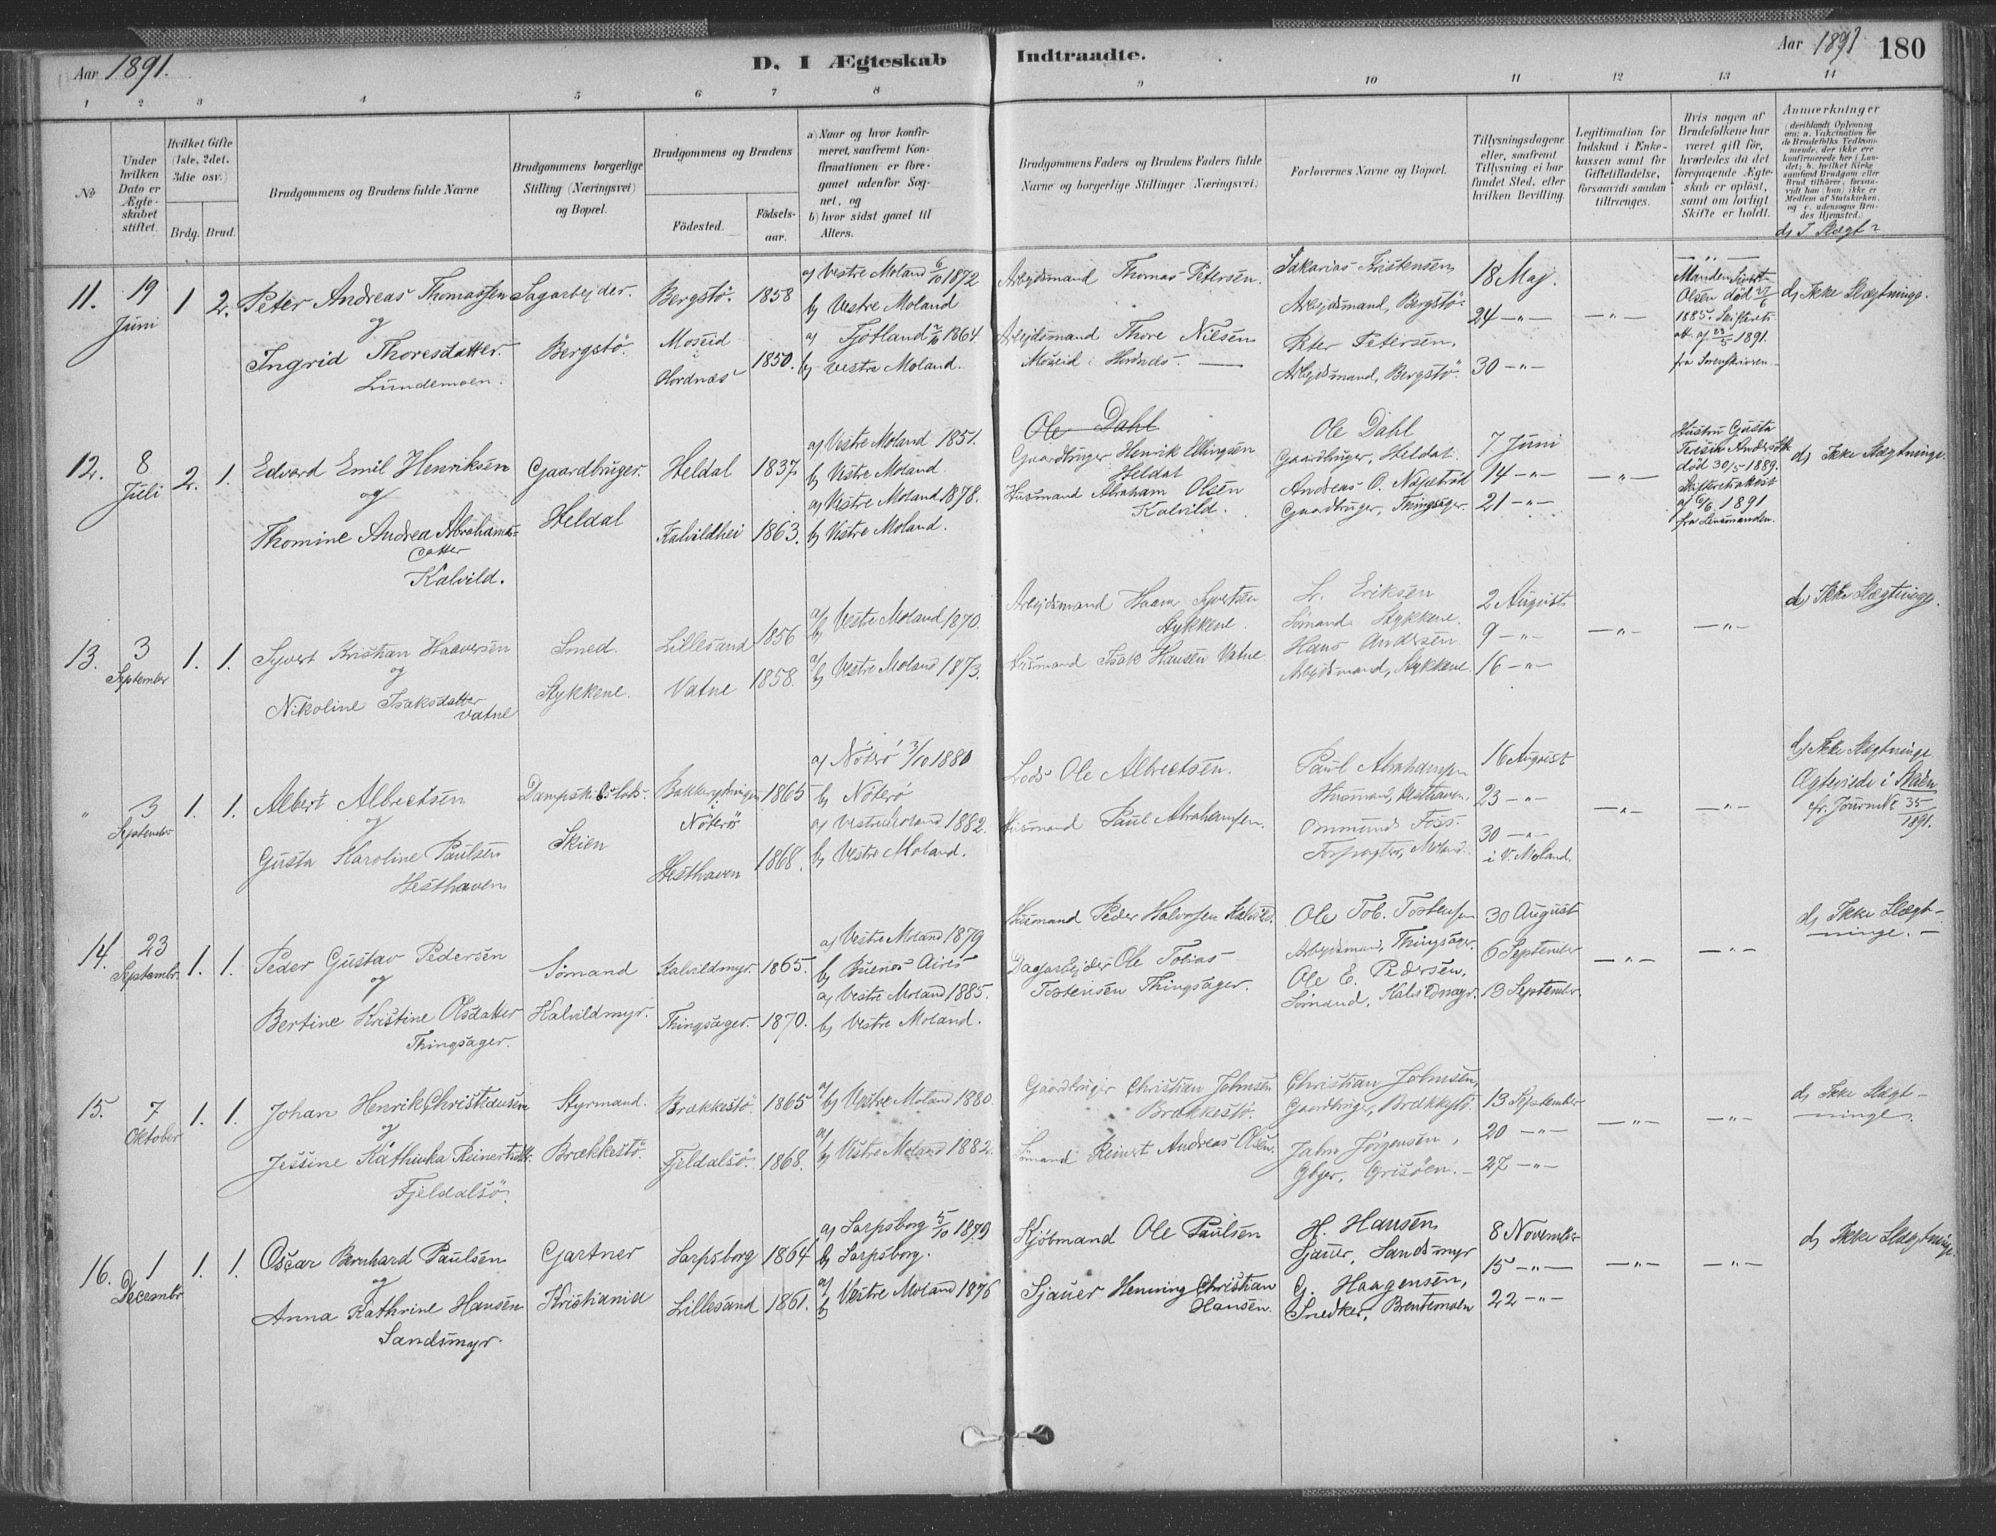 Aar 1891.
D. I Ægteskab Indtraadte.
Aar 1891 180
1 2 3 4 5 6 7 8 9 10 11 12 13 14
No
Under hvilken Dato er Ægteskabet stiftet.
Hvilket Gifte (1ste, 2det, 3die osv.)
Brdg. Brud.
Brudgommens og Brudens fulde Navne
Brudgommens borgerlige Stilling (Næringsvei) og Bopæl.
Brudgommens og Brudens
Födested.
Födsels-aar.
a) Naar og hvor konfirmeret, saafremt Konfirmationen er foregaaet udenfor Sognet, og
b) hvor sidst gaaet til Alters.
Brudgommens Faders og Brudens Faders fulde Navne og borgerlige Stillinger (Næringsvei)
Forlovernes Navne og Bopæl.
Tillysningsdagene eller, saafremt Tillysning ei har fundet Sted, efter hvilken Bevilling.
Legitimation for Indskud i Enkekassen samt for Giftetilladelse, forsaavidt saadan tiltrænges.
Hvis nogen af Brudefolkene har været gift før, hvorledes da det foregaaende Ægteskab er opløst, samt om lovligt Skifte er holdt.
Anmærkninger
d) I Slægt?
11. 19 Juni 1 2.
Peter Andreas Thomassen
og
Ingrid Thoresdatter
Lundemoen.
Sagarbejder.
Bergstö.
Bergstö. 1858
Moseid i Hordnæs 1850.
a) Vestre Moland 6/10 1872
b) Vestre Moland
a) Fjotland 1864
b) Vestre Moland.
Arbejdsmand Thomas Petersen.
Arbejdsmand Thore Nilsen
Moseid i Hordnæs.
Sakarias Kristensen
Arbejdsmand, Bergstö.
Peter Petersen,
Arbejdsmand, Bergstö.
18 Maj.
24 –"–
30 –"–
–"–
–"–
Manden
Olsen död 27/6
1885. Skifteretsatt. af 23/5 1891.
fra Sorenskriveren.
d) Ikke Slægtninge.
12. 8 Juli 2. 1.
Edvard Emil Henriksen
og
Thomine Andrea Abrahamsdatter
Kalvild.
Gaardbruger.
Heldal
Heldal 1837.
Kalvildhei 1863.
a) Vestre Moland 1851.
b) Vestre Moland.
a) Vestre Moland 1878.
b) Vestre Moland.
Ole Dahl
Gaardbruger Henrik Ellingsen
Heldal
Husmand Abraham Olsen
Kalvild.
Ole Dahl
Gaardbruger, Heldal.
Andreas O. Næpetad
Gaardbruger, Thingsager.
7 Juni
14 –"–
21 –"–
–"–
Hustru Gusta
Teresia Andersdtr.
död 30/5 1889.
Skifteretsattest
af 6/6. 1891
fra Lensmanden.
d) Ikke Slægtninge.
13. 3 September 1. 1.
Syvert Kristian Haaversen
og
Nikoline Isaksdatter
Vatne
Smed.
Stykkene.
Lillesand 1856
Vatne 1858.
a/b) Vestre Moland 1870.
a/b) Vestre Moland 1873.
Arbejdsmand Haaver Syvertsen
Stykkene.
Husmand Isak Hansen Vatne.
L. Eriksen
Sömand, Stykkene.
Hans Andersen
Arbejdsmand, Stykkene
2 August
9 –"–
16 –"–
–"–
–"–
d) Ikke Slægtninge.
" 3 September 1. 1.
Albert Albrectsen
og
Gusta Karoline Paulsen
Hesthaven
Dampskibslods.
Skien
Nöterö 1865
Hesthaven 1868.
a) Nöterö 3/10 1880
b) Nöterö
a) Vestre Moland 1882.
b) Vestre Moland.
Lods Ole Albrectsen.
Husmand Paul Abrahamsen.
Paul Abrahamsen
Husmand, Hesthaven.
Ommund Foss.
Forpagter, Moland.
16 August
23 –"–
30 –"–
i V. Moland.
–"–
–"–
d) Ikke Slægtninge
Ægteviede i Skien
cfr. Journ No 35/1891.
14. 23 September. 1. 1.
Peder Gustav Pedersen
og
Bertine Kristine Olsdatter
Thingsager.
Sömand
Kalvildmyr.
Kalvildmyr. 1865.
Thingsager. 1870.
a) Vestre Moland 1879
b) Buenos Aires
a) Vestre Moland 1885.
b) Vestre Moland.
Husmand Peder Halvorsen Kalvild.
Dagarbejder Ole Tobias
Tostensen Thingsager.
Ole Tob. Tostensen
Arbejdsmand, Thingsager.
Ole E. Pedersen,
Sömand, Kalvildmyr.
30 August
6 September
13 September
–"–
–"–
d) Ikke Slægt-
ninge. –
15. 7 Oktober 1. 1.
Johan Henrik Christiansen
og
Jessine Kathinka Reinertsdtr.
Fjeldalsö.
Styrmand.
Brækkestö.
Brækkestö. 1865
Fjeldalsö. 1868.
a/b) Vestre Moland 1880.
a/b) Vestre Moland 1882.
Gaardbruger Christian Johnsen
Brækkestö.
Sömand Reinert Andreas Olsen.
Christian Johnsen,
Gaardbruger, Brækkestö.
Jahn Jörgensen,
Gbger, Grisöen. –
13 September
20 –"–
27 –"–
–"–
–"–
d) Ikke Slægt-
ninge.
16. 1 December 1. 1.
Oscar Bernhard Paulsen
og
Anna Kathrine Hansen
Sandsmyr.
Gartner
Kristiania
Sarpsborg 1864
Lillesand 1861.
a) Sarpsborg 5/10 1879
b) Sarpsborg.
a/b) Vestre Moland 1876
Kjöbmand Ole Paulsen
Sjauer Henning Christian
Hansen.
H. Hansen
Sjauer, Sandsmyr
G. Haagensen,
Snedker, Brentemoen
8 November
15 –"–
22 –"–
–"–
–"–
d) Ikke Slægtninge.